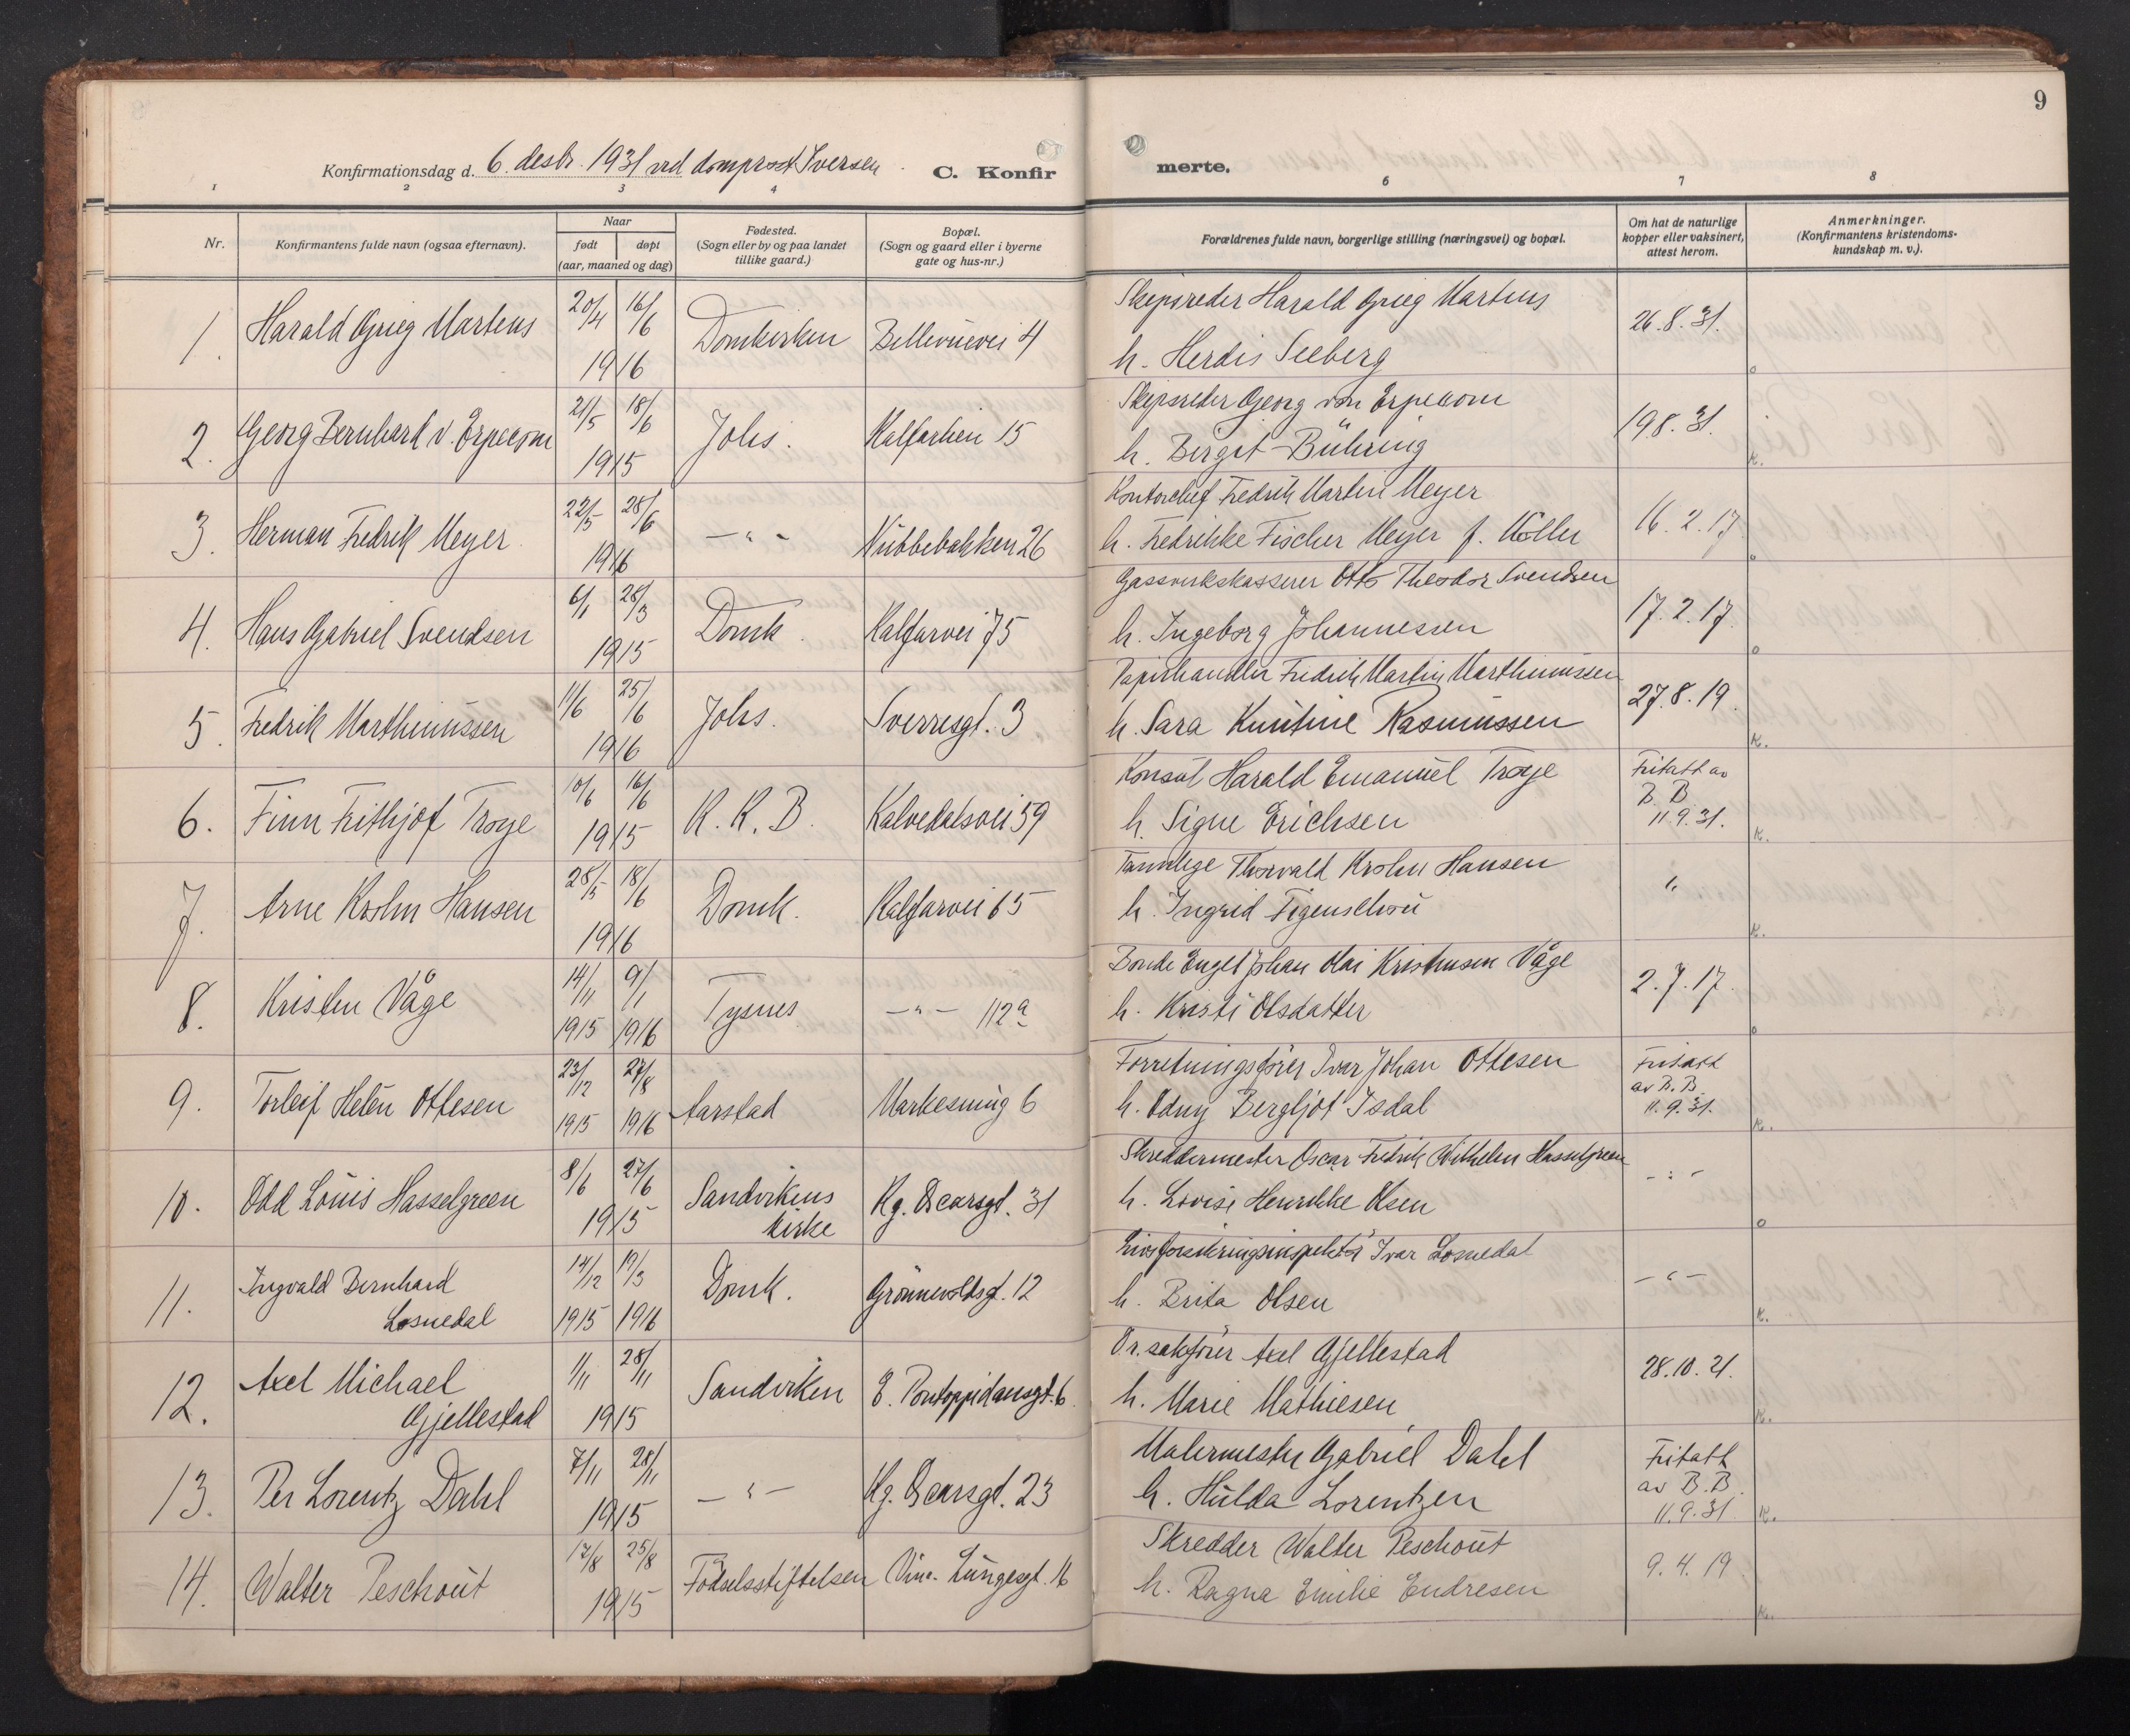 9
Konfirmationsdag d. 6. desbr. 1931 ved domprost Iversen
C. Konfir
merte.
1 2 3 4 6 7 8
Nr.
Konfirmantens fulde navn (ogsaa efternavn).
Naar
født døpt
(aar, maaned og dag)
Fødested.
(Sogn eller by og paa landet
tillike gaard.)
Bopæl.
(Sogn og gaard eller i byerne
gate og hus-nr.)
Forældrenes fulde navn, borgerlige stilling (næringsvei) og bopæl.
Om hat de naturlige
kopper eller vaksinert,
attest herom.
Anmerkninger.
(Konfirmantens kristendoms-
kundskap m. v.).
1. Harald Grieg Martens 20/4 16/6 1916 Domkirken Bellevuevei 4
Skipsreder Harald Grieg Martens
h. Herdis Seeberg
26.8.31. o
2. Georg Bernhard v. Erpecom 21/5 18/6 1915 Johs. Kalfarlien 15
Skipsreder Georg von Erpecom
h. Birgit Bühring
19.8.31. K.
3. Herman Fredrik Meyer 22/5 28/6 1916 — " — Nubbebakken 26
Kontorchef Fredrik Martin Meyer
h. Fredrikke Fischer Meyer f. Möller
16.2.17 o
4. Hans Gabriel Svendsen 6/1 28/3 1915 Domk. Kalfarvei 75
Gassverkskasserer Otto Theodor Svendsen
h. Ingeborg Johannessen
17.2.17. o
5. Fredrik Marthinussen 11/6 25/6 1916 Johs. Sverresgt. 3
Papirhandler Fredrik Martin Marthinussen
h. Sara Kristine Rasmussen
27.8.19. K.
6. Finn Frithjof Troye 10/6 16/6 1915 K. K. B. Kalvedalsvei 59
Konsul Harald Emanuel Troye
h. Signe Erichsen
Fritatt av
B. B.
11.9.31. K.
7. Arne Krohn Hansen 28/5 18/6 1916 Domk. Kalfarvei 65
Tannlege Thorvald Krohn Hansen
h. Ingrid Figenschou
" K.
8. Kristen Våge 14/11 1915 9/1 1916 Tysnes — " — 112a
Bonde Engel Johan Olai Kristensen Våge
h. Kristi Olsdatter
2.7.17. o
9. Torleif Helén Ottesen 23/12 1915 27/8 1916 Aarstad Markesmug 6
Forretningsfører Ivar Johan Ottesen
h. Odny Bergljot Isdal
Fritatt
av B.B.
11.9.31. K.
10. Odd Louis Hasselgreen 8/6 27/6 1915 Sandvikens
kirke Kg. Oscarsgt. 31
Skreddermester Oscar Fredrik Wilhelm Hasselgreen
h. Lovise Henrikke Olsen
- " - o
11. Ingvald Bernhard
Losnedal 14/12 1915 19/3 1916 Domk. Grönnevoldsgt. 12
Livsforsikringsinspektör Ivar Losnedal
h. Brita Olsen
— " — K.
12. Axel Michael
Gjellestad 1/11 28/11 1915 Sandviken E. Pontoppidansgt. 6
Or.sakfører Axel Gjellestad
h. Marie Mathiesen
28.10.21. K.
13. Per Lorentz Dahl 7/11 28/11 1915 — " — Kg. Oscarsgt. 23
Malermester Gabriel Dahl
h. Hulda Lorentzen
Fritatt
av B.B.
11.9.31 K.
14. Walter Peschout 17/8 25/8 1915 Födselsstiftelsen Vinc. Lungesgt. 16
Skredder Walter Peschout
h. Ragna Emilie Endresen
9.4.19. K.